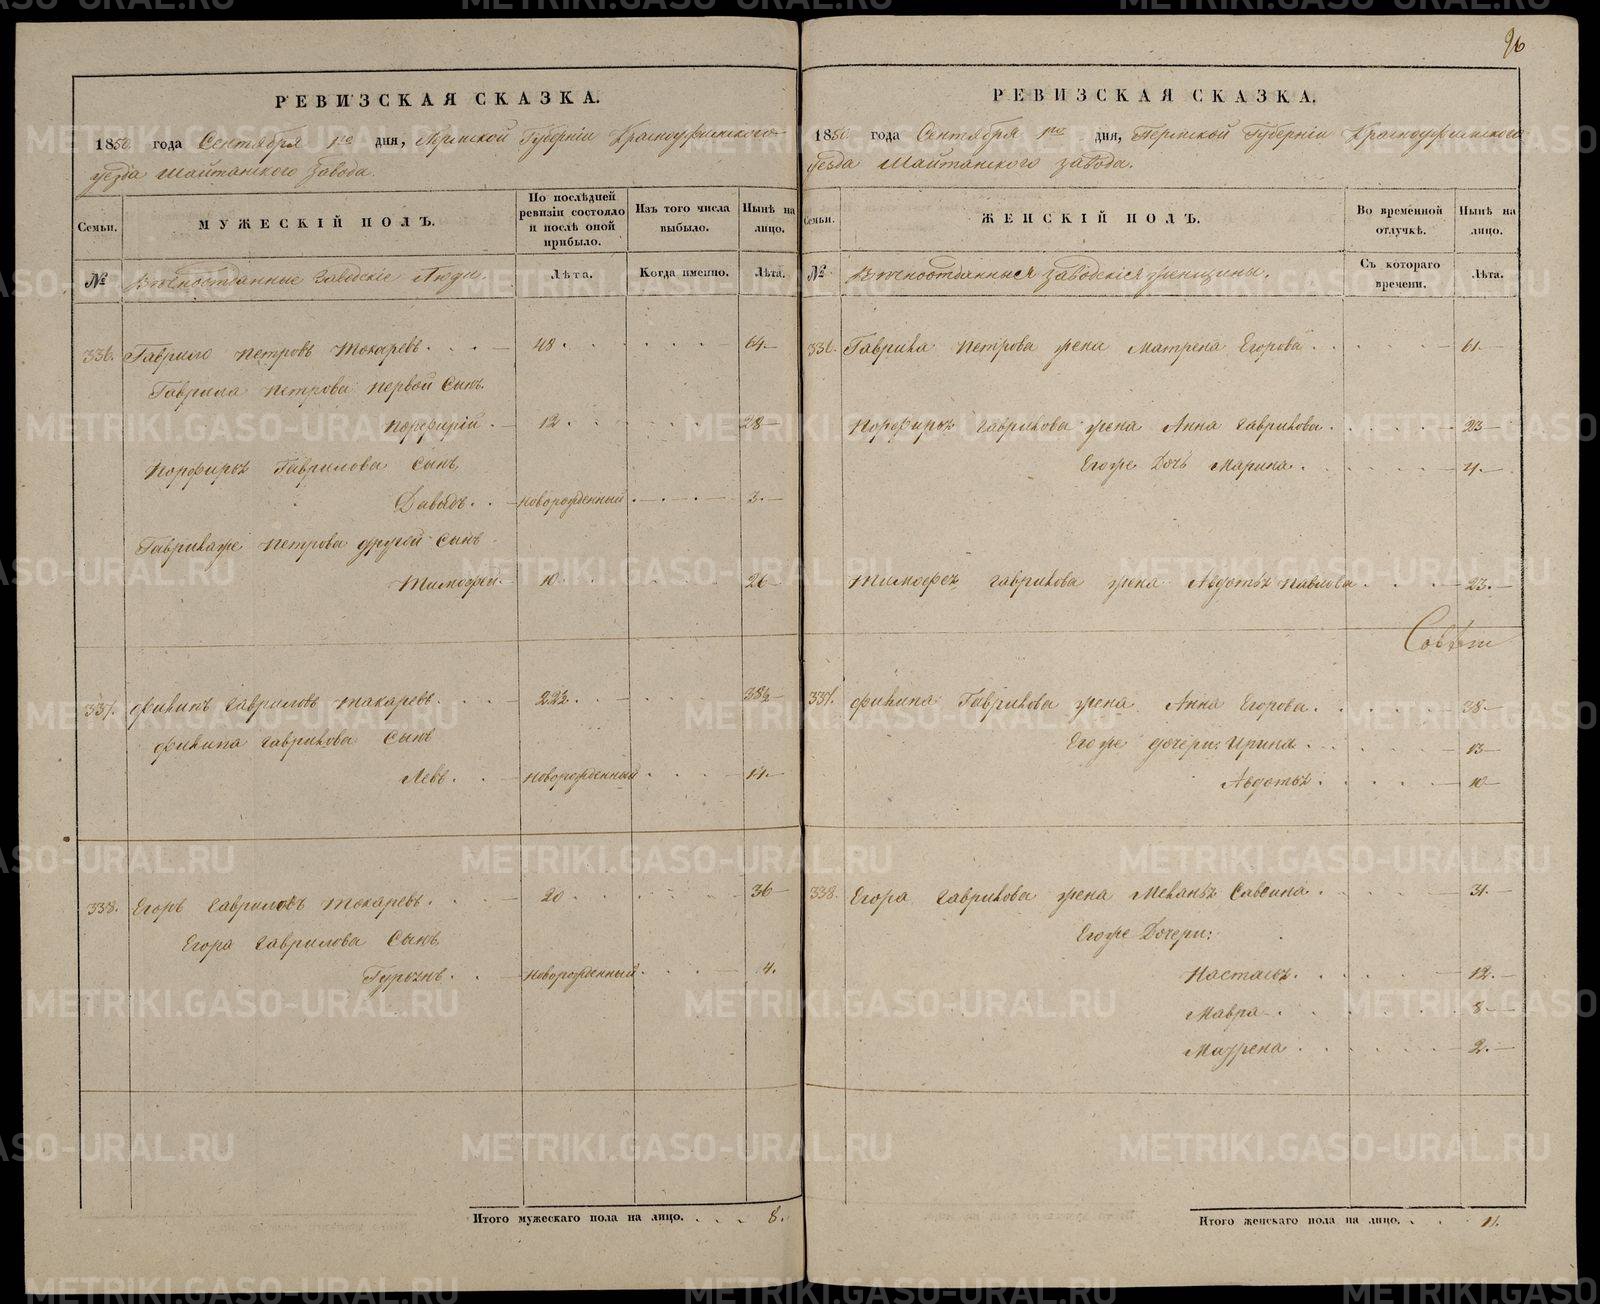 96
РЕВИЗСКАЯ СКАЗКА.
1850 года Сентября 1го дня, Пермской Губернiи Красноуфимскаго
уезда Шайтанского завода.
Семьи.
МУЖЕСКIЙ ПОЛЪ.
По послѣдней ревизiи состояло и послѣ оной прибыло.
Изъ того числа выбыло.
Нынѣ на лицо.
№
Вечноотданные заводскiе Люди.
Лѣта.
Когда именно.
Лѣта.
336. Гаврило Петровъ Токаревъ. 48 64
Гаврила Петрова первой Сынъ
Порфирiй 12 28
Порфирья Гаврилова Сынъ
Давыдъ. новорожденный 3.
Гаврилаже Петрова другой Сынъ
Тимофей 10 26
337. Филипъ Гавриловъ Токаревъ. 22½ 38½
Филипа Гаврилова Сынъ
Левъ. новорожденный 14.
338. Егоръ Гавриловъ Токаревъ. 20 36
Егора Гаврилова Сынъ
Гурьянъ. новорожденный 4.
Итого мужескаго пола на лицо. 8.
РЕВИЗСКАЯ СКАЗКА.
1850 года Сентября 1го дня, Пермской Губернiи Красноуфимского
уезда Шайтанского завода.
Семьи.
ЖЕНСКIЙ ПОЛЪ.
Во временной отлучкѣ.
Нынѣ на лицо.
№
Вечноотданныя заводскiя женщины.
Съ котораго времени.
Лѣта.
336. Гаврила Петрова жена Матрена Егорова 61
Порфирья Гаврилова жена Анна Гаврилова. 23
Егоже Дочь Марина 4
Тимофея Гаврилова жена Авдотья Павлова 23.
337. Филипа Гаврилова жена Анна Егорова. 38
Егоже дочери: Ирина 13
Авдотья 10
338. Егора Гаврилова жена Меланья Савина 31.
Егоже Дочери:
Настасья 12.
Мавра 8
Матрена 2.
Итого женскаго пола на лицо. 11.
METRIKI.GASO-URAL.RU